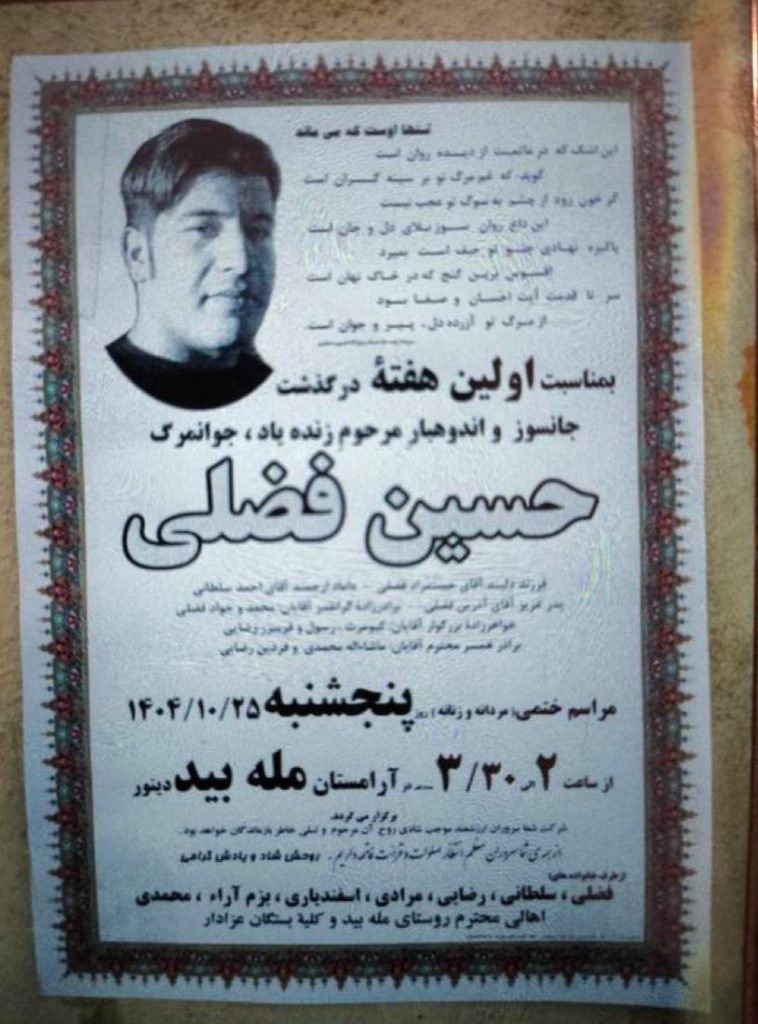 تنها اوست که می ماند
این اشک که در ماتمت از دیده روان است
گوید که غم مرگ تو بر سینه گران است
گر خون رود از چشم به سوگ تو عجب نیست
این داغ روان سوز بلای دل و جان است
پاکیزه نهادی چو تو حیف است بمیرد
افسوس ترین گنج که در خاک نهان است
سر تا قدمت آیت احسان و صفا بود
از مرگ تو آزرده دل، پیر و جوان است
بمناسبت اولین هفتهٔ درگذشت
جانسوز و اندوهبار مرحوم زنده یاد، جوانمرگ
حسین فضلی
فرزند دلبند آقای فضلی - داماد ارجمند آقای احمد سلطانی
پدر عزیز آقای فضلی - برادرزادهٔ گرانقدر آقایان: محمد و جواد فضلی
خواهرزادهٔ بزرگوار آقایان: کیومرث، رسول و فریبرز رضایی
برادر همسر محترم آقایان: ماشااله محمدی و فردین رضایی
مراسم ختمی (مردانه و زنانه) روز پنجشنبه ۱۴۰۴/۱۰/۲۵
از ساعت ۲ الی ۳/۳۰ در آرامستان مله بید دینور
برگزار می گردد.
شرکت شما سروران ارزشمند موجب شادی روح آن مرحوم و تسلی خاطر بازماندگان خواهد بود.
از همه ی شما سروران معظم انتظار صلوات و قرائت فاتحه داریم. روحش شاد و یادش گرامی
از طرف خانواده های:
فضلی، سلطانی، رضایی، مرادی، اسفندیاری، بزم آراء، محمدی
اهالی محترم روستای مله بید و کلیهٔ بستگان عزادار